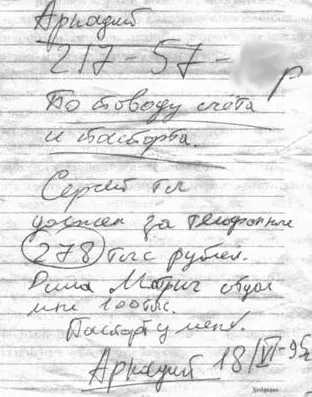 Аркадий
217-57-
По поводу счёта
и паспорта.
Сергей ты
должен за телефонные
278 тыс рублей.
Дима отдал
мне 100тыс.
Паспорт у меня.
Аркадий 18/VI-95